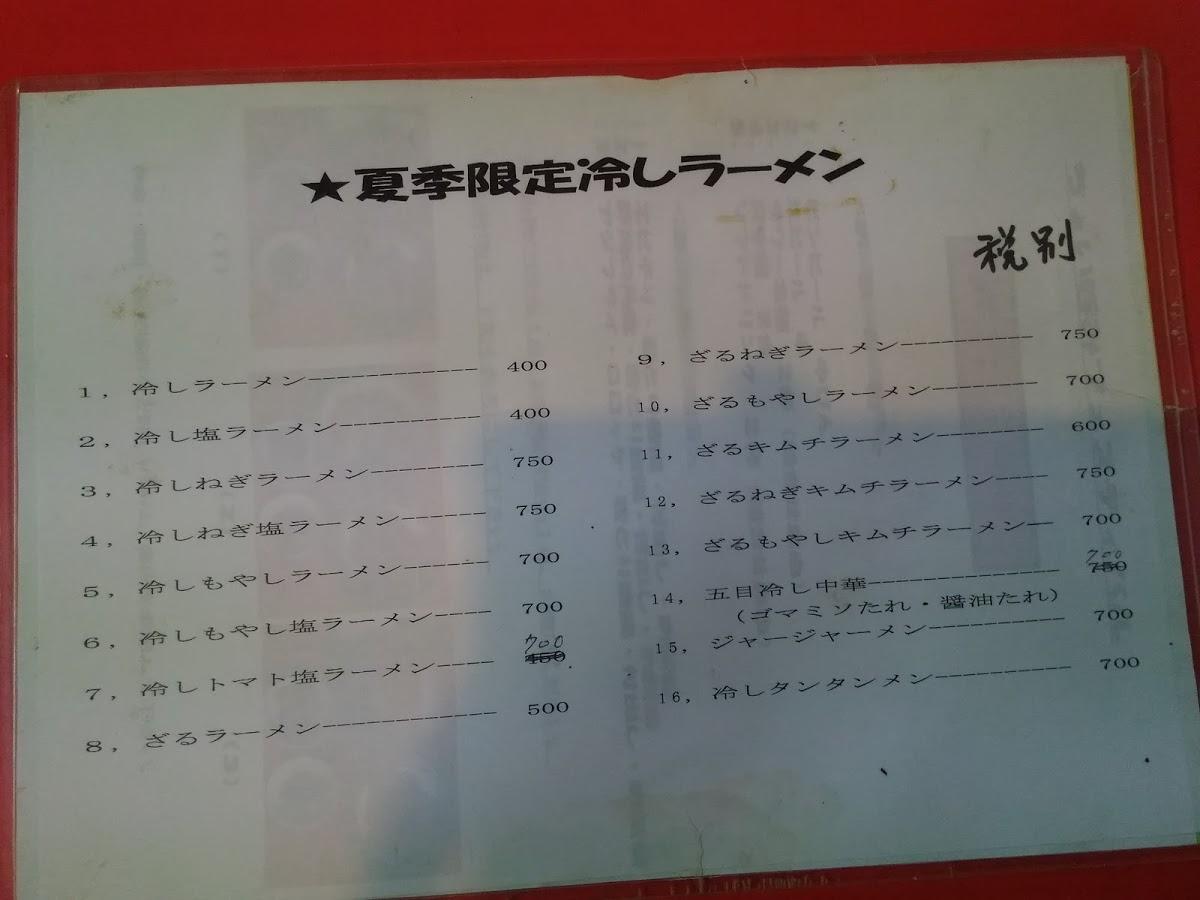 ★夏季限定冷しラーメン
税別
1, 冷しラーメン------------ 400
2, 冷し塩ラーメン---------- 400
3, 冷しねぎラーメン-------- 750
4, 冷しねぎ塩ラーメン------ 750
5, 冷しもやしラーメン------ 700
6, 冷しもやし塩ラーメン---- 700
700
7, 冷しトマト塩ラーメン---- 450
8, ざるラーメン------------ 500
9, ざるねぎラーメン---------- 750
10, ざるもやしラーメン-------- 700
11, ざるキムチラーメン-------- 600
12, ざるねぎキムチラーメン---- 750
13, ざるもやしキムチラーメン-- 700
700
14, 五目冷し中華-------------- 750
(ゴマミソたれ・醤油たれ)
15, ジャージャーメン---------- 700
16, 冷しタンタンメン---------- 700